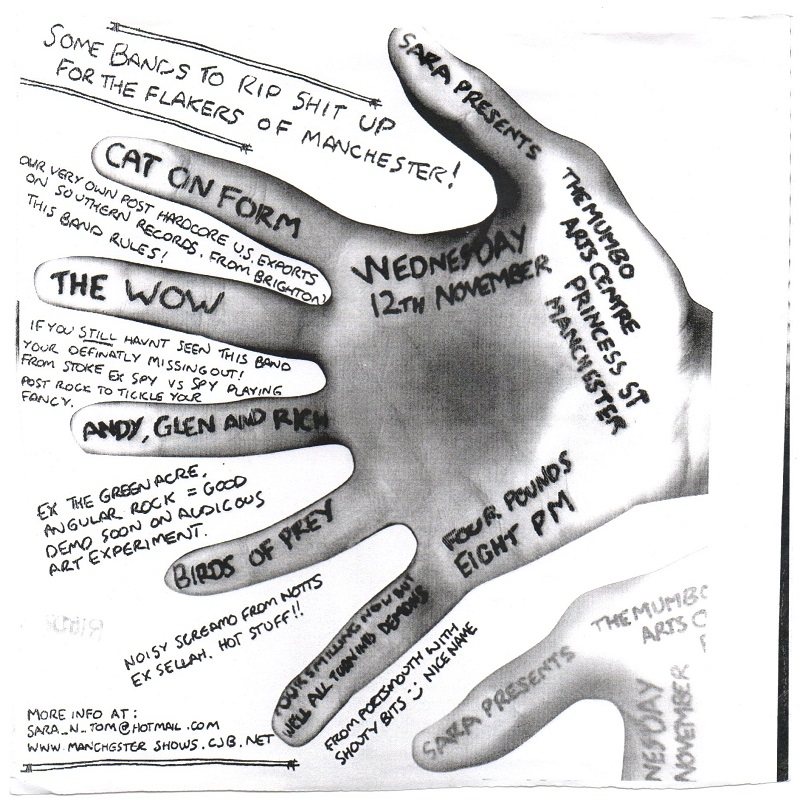 SOME BANDS TO RIP SHIT UP
FOR THE FLAKERS OF MANCHESTER!
SARA PRESENTS
CAT ON FORM
OUR VERY OWN POST HARDCORE U.S. EXPORTS
ON SOUTHERN RECORDS. FROM BRIGHTON,
THIS BAND RULES!
THE WOW
IF YOU STILL HAVNT SEEN THIS BAND
YOUR DEFINATLY MISSING OUT!
FROM STOKE EX SPY VS SPY PLAYING
POST ROCK TO TICKLE YOUR
FANCY.
ANDY, GLEN AND RICH
EX THE GREEN ACRE.
ANGULAR ROCK = GOOD
DEMO SOON ON AUDICOUS
ART EXPERIMENT.
BIRDS OF PREY
NOISY SCREAMO FROM NOTTS
EX SELLAH. HOT STUFF!!
OUR SMILLING NOW BUT
WE'LL ALL TURN INTO DEMONS
FROM PORTSMOUTH WITH
SHOUTY BITS :) NICE NAME
WEDNESDAY
12TH NOVEMBER
THE MUMBO
ARTS CENTRE
PRINCESS ST
MANCHESTER
FOUR POUNDS
EIGHT PM
MORE INFO AT:
SARA_N_TOM@HOTMAIL.COM
WWW.MANCHESTER SHOWS.CJB.NET
THE MUMBO
ARTS C
SARA PRESENTS
NESDAY
NOVEMBER